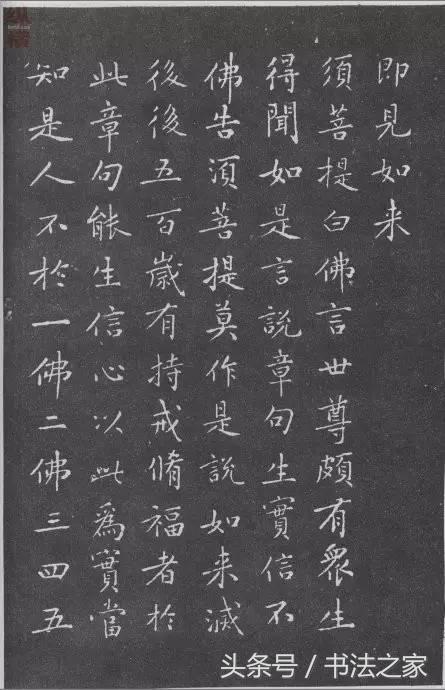 即見如来
須菩提白佛言世尊頗有衆生
得聞如是言說章句生實信不
佛告須菩提莫作是說如来滅
後後五百歲有持戒脩福者於
此章句能生信心以此為實當
知是人不於一佛二佛三四五
头条号 / 书法之家